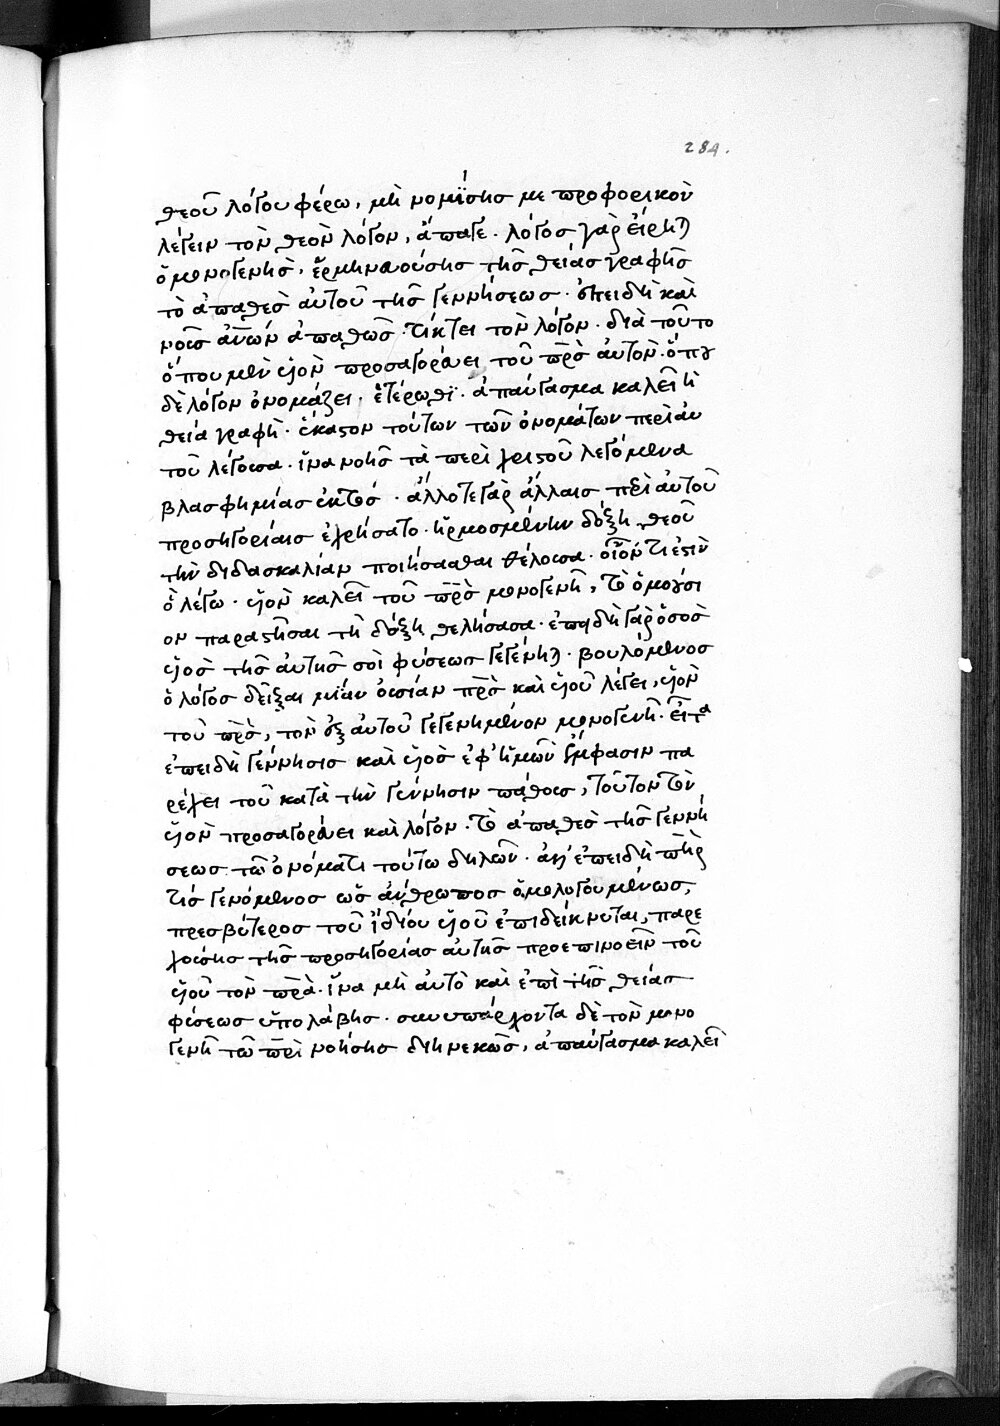 284.
θεοῦ λόγου φέρω, μὴ νομίσης με προφορικὸν
λέγειν τὸν θεὸν λόγον, ἄπαγε. λόγος γὰρ εἴρη)
ὁ μονογενὴς, ἑρμηνευούσης τῆς θείας γραφῆς
τὸ ἀπαθὲς αὐτοῦ τῆς γεννήσεως. ἐπειδὴ καὶ
νοῦς ἀν̅ων ἀπαθῶς τίκτει τὸν λόγον. διὰ τοῦτο
ὅπου μὲν υἱὸν προσαγορεύει τοῦ πρ̅ὸς αὐτὸν. ὅπου
δὲ λόγον ὀνομάζει. ἑτέρωθι. ἀπαύγασμα καλεῖ ἡ
θεία γραφὴ. ἕκαστον τούτων τῶν ὀνομάτων περὶ αὐ
τοῦ λέγουσα. ἵνα νοῆς τὰ περὶ χριστοῦ λεγόμενα
βλασφημίας ἐκτός. ἄλλοτε γὰρ ἄλλαις περὶ αὐτοῦ
προσηγορίαις ἐχρήσατο. ἡρμοσμένην δόξη θεοῦ
τὴν διδασκαλίαν ποιήσασθαι θέλουσα. οἷόν τι ἐστὶν
ὃ λέγω. υἱὸν καλεῖ τοῦ πρ̅ὸς μονογενῆ, τὸ ὁμοούσι
ον παραστῆσαι τῆ δόξη θελήσασα. ἐπειδὴ γὰρ ὁ σὸς
υἱὸς τῆς αὐτῆς σοὶ φύσεως γεγένη). βουλόμενος
ὁ λόγος δεῖξαι μίαν οὐσίαν πρ̅ὸς καὶ υἱοῦ λέγει, υἱὸν
τοῦ πρ̅ὸς, τὸν ἐξ αὐτοῦ γεγενημένον μονογενῆ. εἶτα
ἐπειδὴ γέννησις καὶ υἱὸς ἐφ' ἡμῶν ἔμφασιν πα
ρέχει τοῦ κατὰ τὴν γέννησιν πάθους, τοῦτον τὸν
υἱὸν προσαγορεύει καὶ λόγον. τὸ ἀπαθὲς τῆς γεννή
σεως τῶ ὀνόματι τούτω δηλῶν. ἀλλ' ἐπειδὴ π̅ὴρ
τίς γενόμενος ὡς ἄνθρωπος ὁμολογουμένως,
πρεσβύτερος τοῦ ἰδίου υἱοῦ ἐπιδείκνυται, παρε
χούσης τῆς προσηγορίας αὐτῆς προεπινοεῖν τοῦ
υἱοῦ τὸν π̅ρ̅α. ἵνα μὴ αὐτὸ καὶ ἐπὶ τῆς θείας
φύσεως ὑπολάβης. συνυπάρχοντα δὲ τὸν μονο
γενῆ τῶ π̅ρ̅ὶ νοήσης διηνεκῶς, ἀπαύγασμα καλεῖ